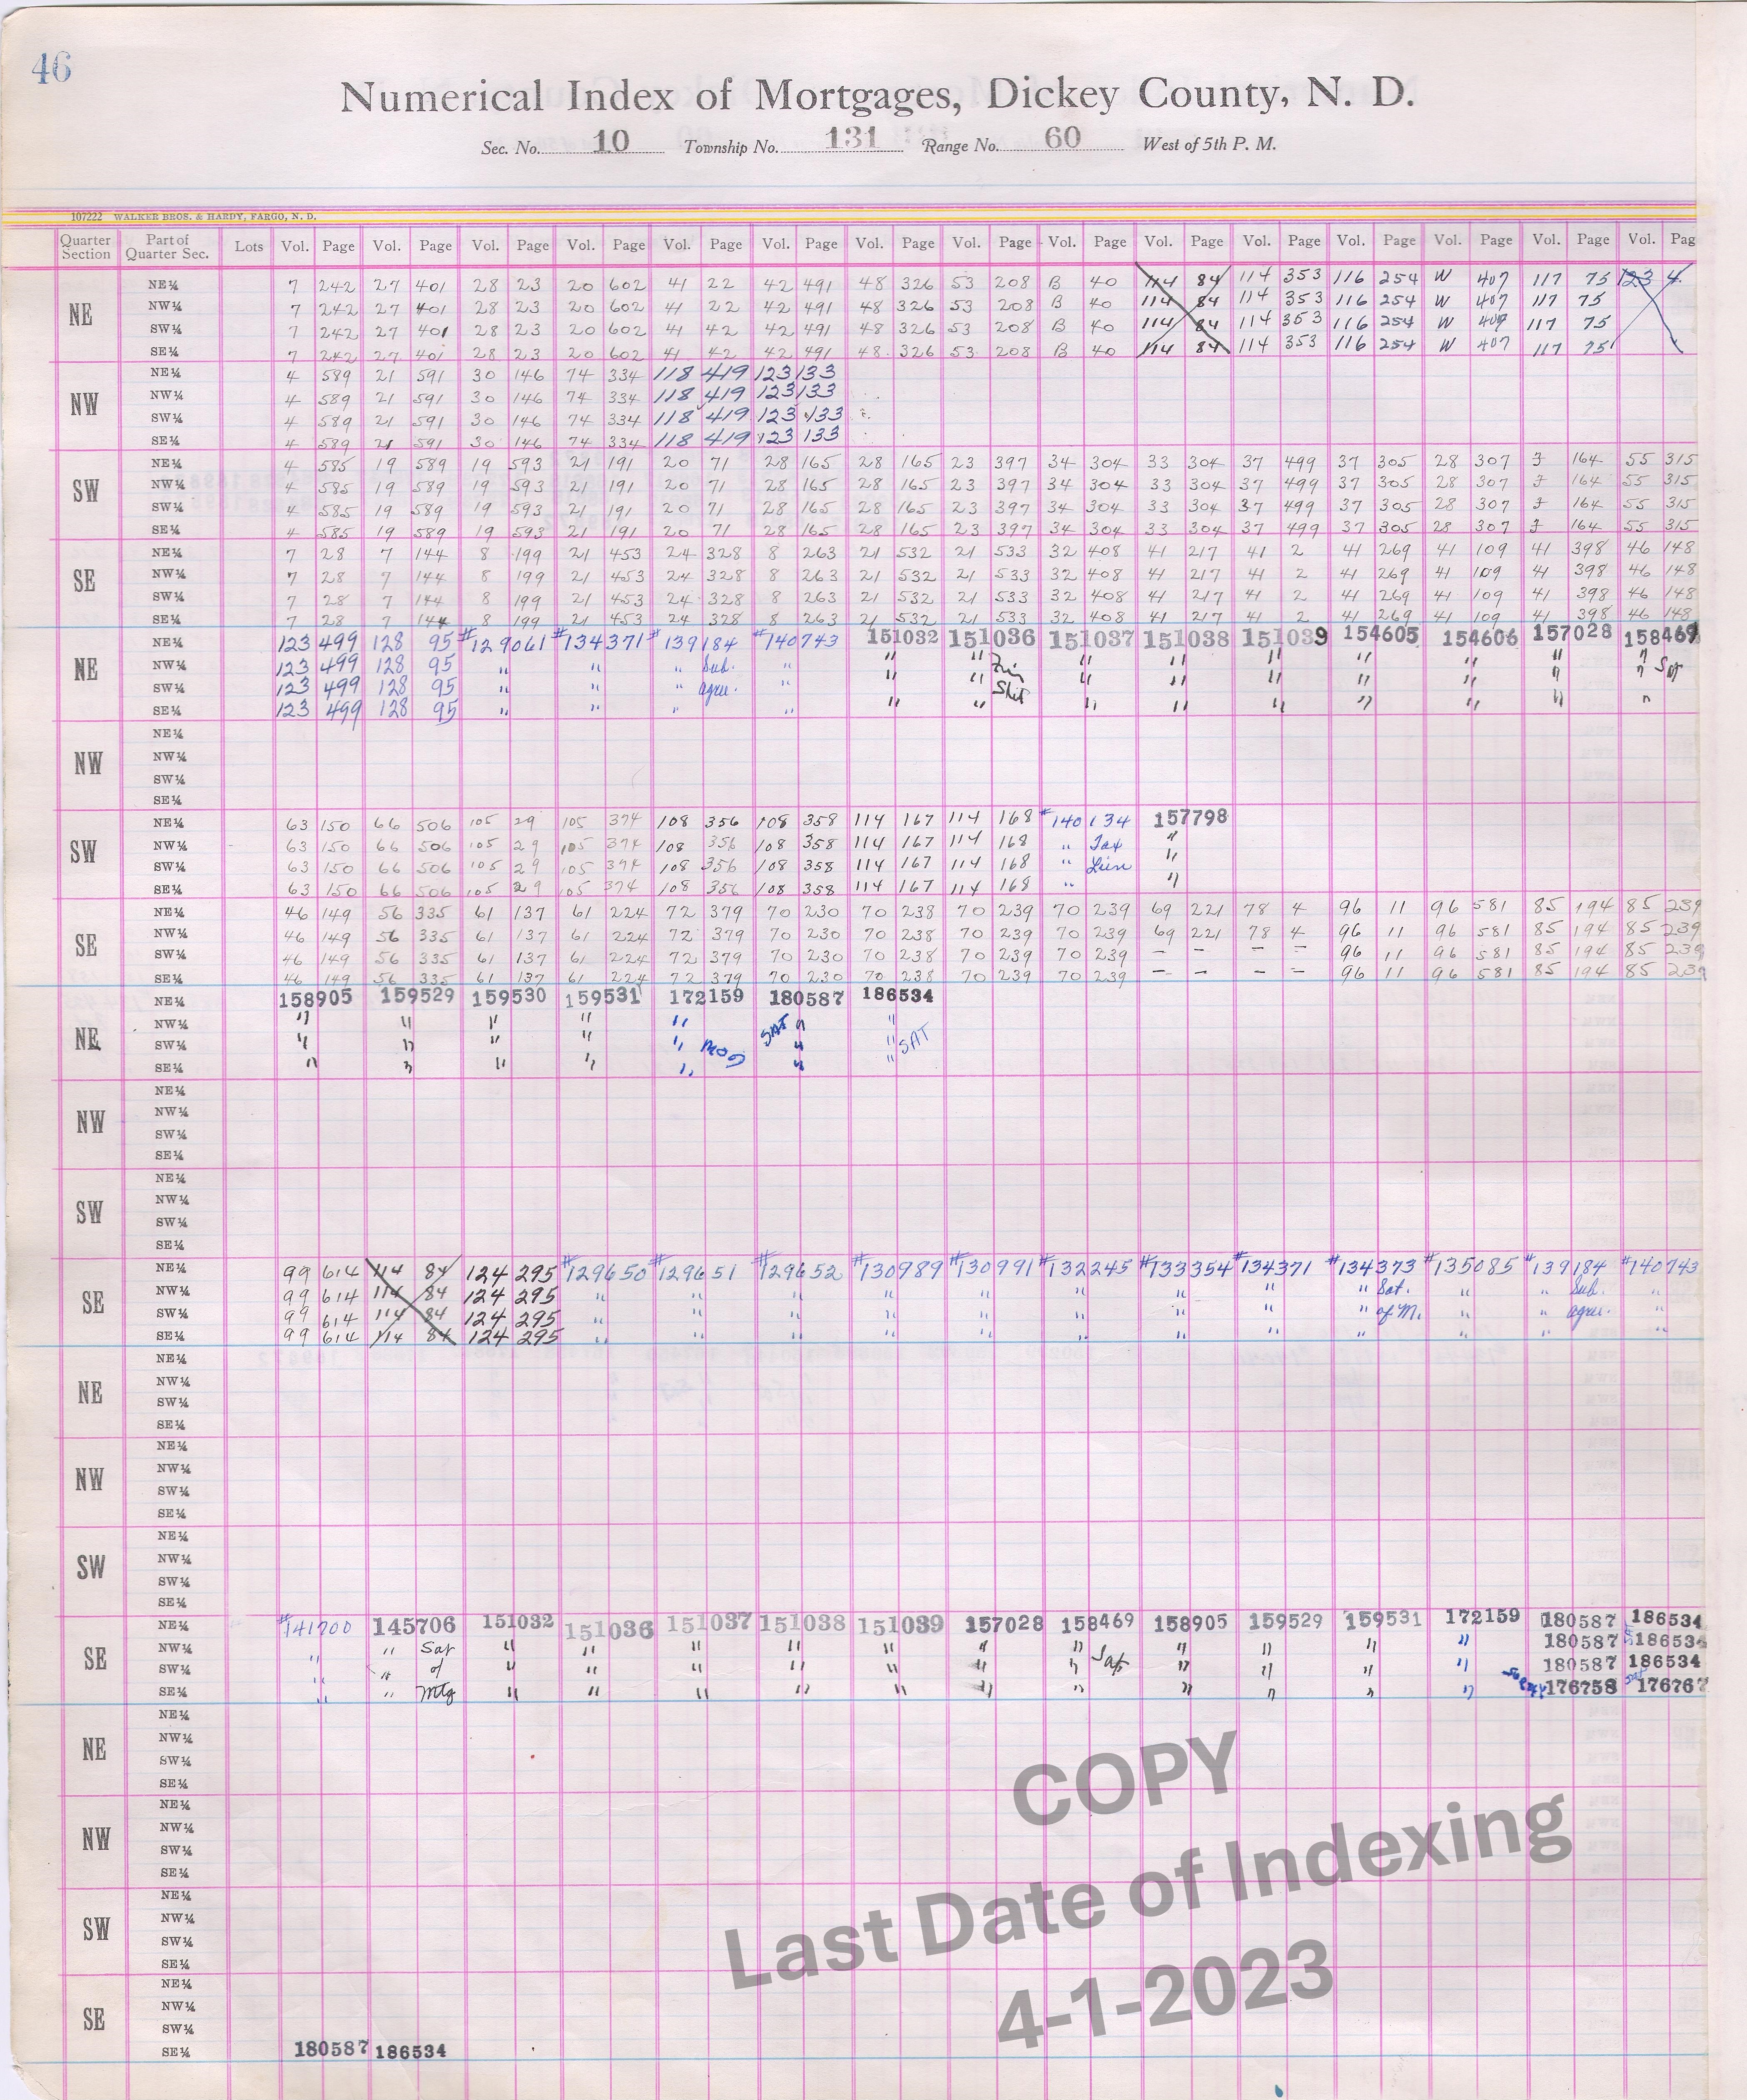 46
Numerical Index of Mortgages, Dickey County, N. D.
Sec. No. 10 Township No. 131 Range No. 60 West of 5th P. M.
107222 WALKER BROS. & HARDY, FARGO, N. D.
Quarter Section Part of Quarter Sec. Lots Vol. Page Vol. Page Vol. Page Vol. Page Vol. Page Vol. Page Vol. Page Vol. Page Vol. Page Vol. Page Vol. Page Vol. Page Vol. Page Vol. Page Vol. Pag
NE
NE¼ 7 242 27 401 28 23 20 602 41 22 42 491 48 326 53 208 B 40 114 84 114 353 116 254 W 407 117 75 123 4
NW¼ 7 242 27 401 28 23 20 602 41 22 42 491 48 326 53 208 B 40 114 84 114 353 116 254 W 407 117 75
SW¼ 7 242 27 401 28 23 20 602 41 42 42 491 48 326 53 208 B 40 114 84 114 353 116 254 W 407 117 75
SE¼ 7 242 27 401 28 23 20 602 41 42 42 491 48 326 53 208 B 40 114 84 114 353 116 254 W 407 117 75
NW
NE¼ 4 589 21 591 30 146 74 334 118 419 123 133
NW¼ 4 589 21 591 30 146 74 334 118 419 123 133
SW¼ 4 589 21 591 30 146 74 334 118 419 123 133
SE¼ 4 589 21 591 30 146 74 334 118 419 123 133
SW
NE¼ 4 585 19 589 19 593 21 191 20 71 28 165 28 165 23 397 34 304 33 304 37 499 37 305 28 307 J 164 55 315
NW¼ 4 585 19 589 19 593 21 191 20 71 28 165 28 165 23 397 34 304 33 304 37 499 37 305 28 307 J 164 55 315
SW¼ 4 585 19 589 19 593 21 191 20 71 28 165 28 165 23 397 34 304 33 304 37 499 37 305 28 307 J 164 55 315
SE¼ 4 585 19 589 19 593 21 191 20 71 28 165 28 165 23 397 34 304 33 304 37 499 37 305 28 307 J 164 55 315
SE
NE¼ 7 28 7 144 8 199 21 453 24 328 8 263 21 532 21 533 32 408 41 217 41 2 41 269 41 109 41 398 46 148
NW¼ 7 28 7 144 8 199 21 453 24 328 8 263 21 532 21 533 32 408 41 217 41 2 41 269 41 109 41 398 46 148
SW¼ 7 28 7 144 8 199 21 453 24 328 8 263 21 532 21 533 32 408 41 217 41 2 41 269 41 109 41 398 46 148
SE¼ 7 28 7 144 8 199 21 453 24 328 8 263 21 532 21 533 32 408 41 217 41 2 41 269 41 109 41 398 46 148
NE
NE¼ 123 499 128 95 #129061 #134371 #139184 #140743 151032 151036 151037 151038 151039 154605 154606 157028 158469
NW¼ 123 499 128 95 " " " Sub. " " " Fin " " " " " " " Sat
SW¼ 123 499 128 95 " " " agree. " " " Stat " " " " " " "
SE¼ 123 499 128 95 " " " " " " " " " " " " "
NW
NE¼
NW¼
SW¼
SE¼
SW
NE¼ 63 150 66 506 105 29 105 374 108 356 108 358 114 167 114 168 #140134 157798
NW¼ 63 150 66 506 105 29 105 374 108 356 108 358 114 167 114 168 " Tax "
SW¼ 63 150 66 506 105 29 105 374 108 356 108 358 114 167 114 168 " Lien "
SE¼ 63 150 66 506 105 29 105 374 108 356 108 358 114 167 114 168 " "
SE
NE¼ 46 149 56 335 61 137 61 224 72 379 70 230 70 238 70 239 70 239 69 221 78 4 96 11 96 581 85 194 85 239
NW¼ 46 149 56 335 61 137 61 224 72 379 70 230 70 238 70 239 70 239 69 221 78 4 96 11 96 581 85 194 85 239
SW¼ 46 149 56 335 61 137 61 224 72 379 70 230 70 238 70 239 70 239 — — — — 96 11 96 581 85 194 85 239
SE¼ 46 149 56 335 61 137 61 224 72 379 70 230 70 238 70 239 70 239 — — — — 96 11 96 581 85 194 85 239
NE
NE¼ 158905 159529 159530 159531 172159 180587 186534
NW¼ " " " " " SAT " "
SW¼ " " " " " MOD " " SAT
SE¼ " " " " " " "
NW
NE¼
NW¼
SW¼
SE¼
SW
NE¼
NW¼
SW¼
SE¼
SE
NE¼ 99 614 114 84 124 295 #129650 #129651 #129652 #130989 #130991 #132245 #133354 #134371 #134373 #135085 #139184 #140743
NW¼ 99 614 114 84 124 295 " " " " " " " " " Sat. " " Sub. "
SW¼ 99 614 114 84 124 295 " " " " " " " " " of M. " " agree. "
SE¼ 99 614 114 84 124 295 " " " " " " " " " " " "
NE
NE¼
NW¼
SW¼
SE¼
NW
NE¼
NW¼
SW¼
SE¼
SW
NE¼
NW¼
SW¼
SE¼
SE
NE¼ #141700 145706 151032 151036 151037 151038 151039 157028 158469 158905 159529 159531 172159 180587 186534
NW¼ " " Sat " " " " " " " " " " " 180587 186534
SW¼ " " of " " " " " " " Sat " " " " 180587 186534
SE¼ " " Mtg " " " " " " " " " " " 176758 176767
NE
NE¼
NW¼
SW¼
SE¼
NW
NE¼
NW¼
SW¼
SE¼
SW
NE¼
NW¼
SW¼
SE¼
SE
NE¼
NW¼
SW¼
SE¼ 180587 186534
COPY
Last Date of Indexing
4-1-2023